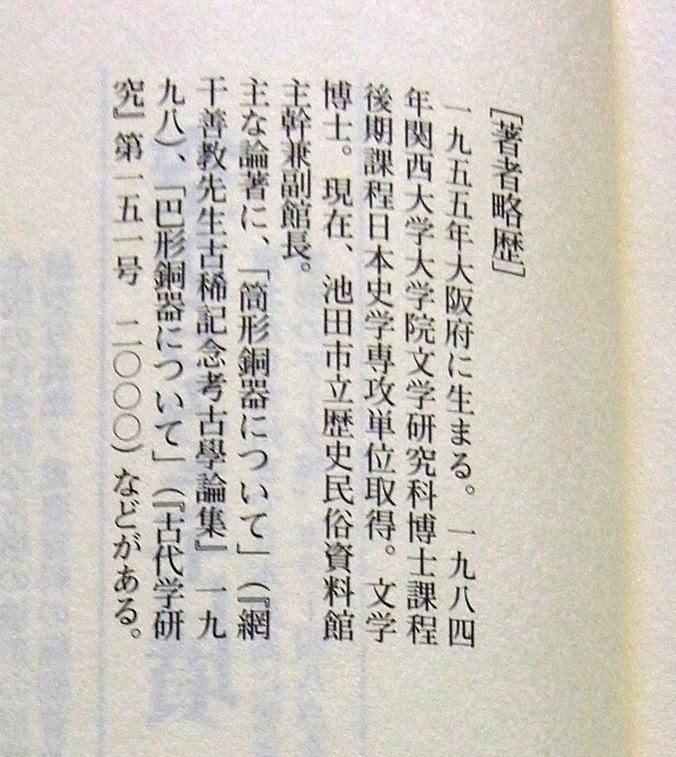 ［著者略歴］
一九五五年大阪府に生まる。一九八四
年関西大学大学院文学研究科博士課程
後期課程日本史学専攻単位取得。文学
博士。現在、池田市立歴史民俗資料館
主幹兼副館長。
主な論著に、「筒形銅器について」（『網
干善教先生古稀記念考古學論集』一九
九八）、「巴形銅器について」（『古代学研
究』第一五一号　二〇〇〇）などがある。